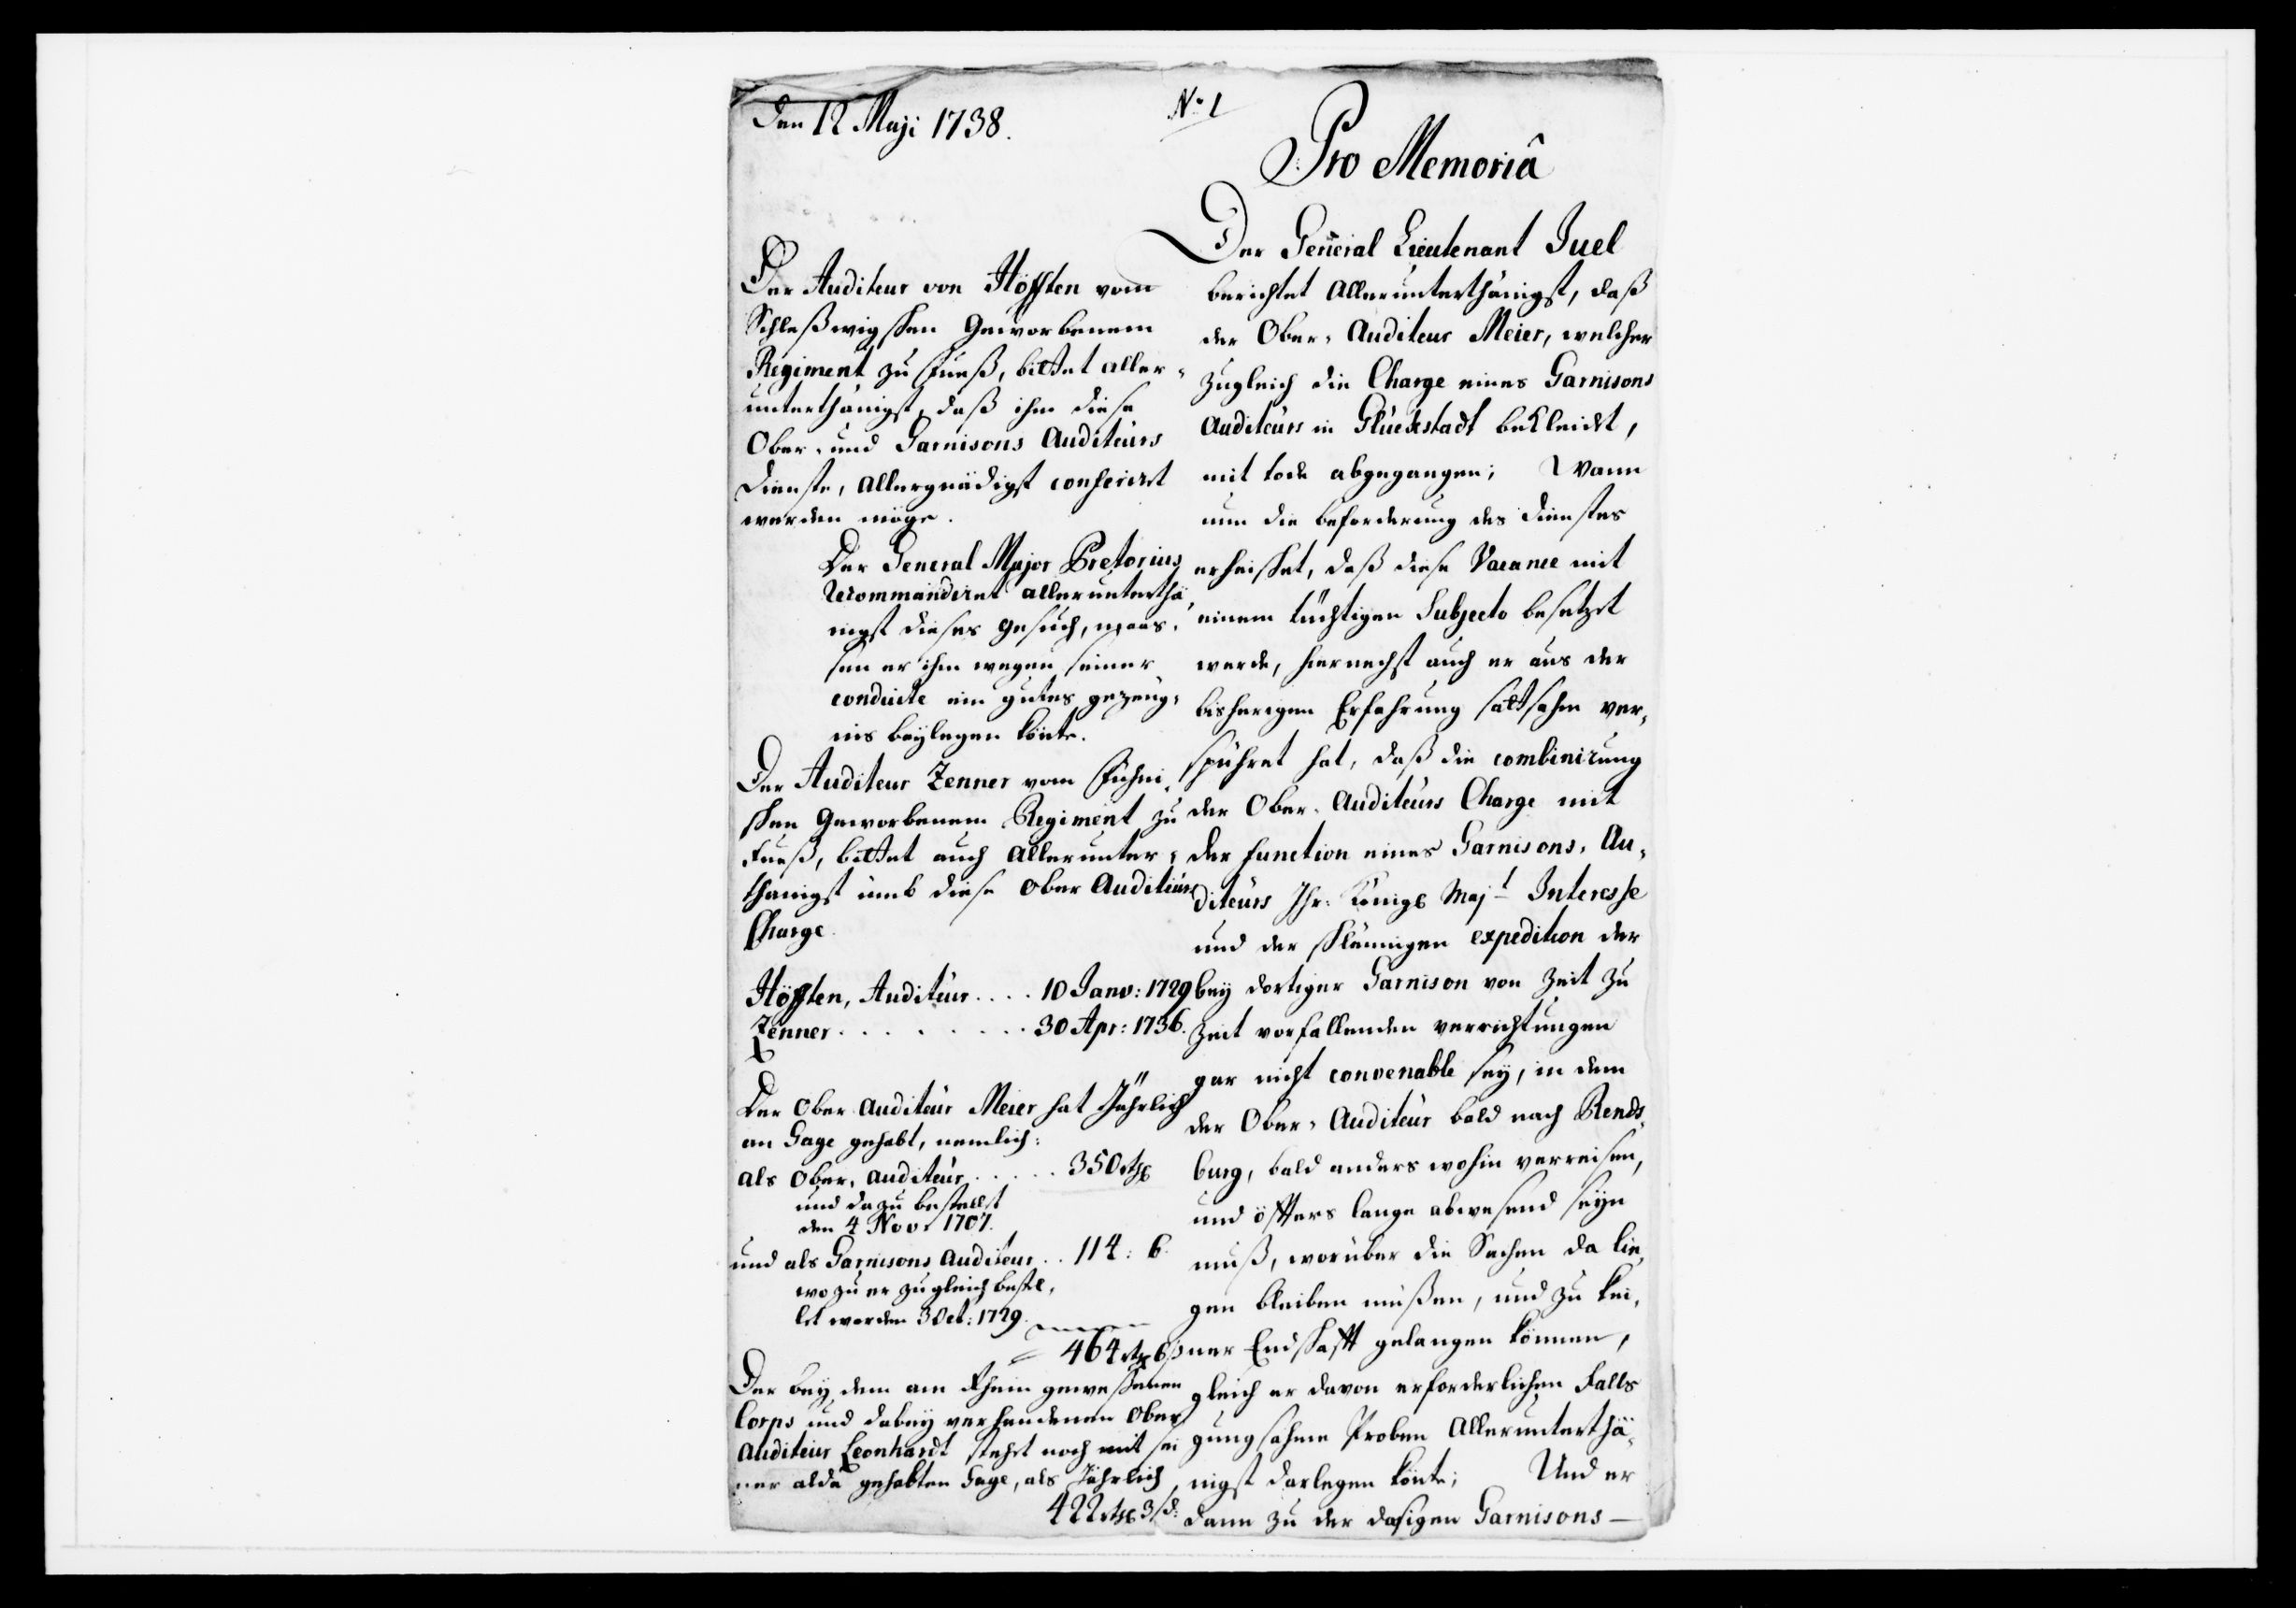 Den 12 Maji 1738.
No 1
Pro Memoriâ
Der Auditeur von Höfften vom
Schleßwigschen Geworbenem
Regiment zu Fueß, bittet aller-
unterthänigst, daß ihm diese
Ober- und Garnisons Auditeurs
Dienste, Allergnädigst conferiret
werden möge.
Der General Major Pretorius
recommandiret allerunterthä-
nigst dieses gesuch, maas-
sen er ihm wegen seiner
conduite ein gutes gezeug-
nis beylegen könte.
Der Auditeur Zenner vom Fühni-
schen Geworbenem Regiment zu
Fueß, bittet auch Allerunter-
thänigst umb diese Ober Auditeurs
Charge.
Höfften, Auditeur .... 10 Janv: 1729
Zenner ......... 30 Apr: 1736.
Der Ober Auditeur Meier hat Jährlich
an Gage gehabt, nemlich:
als Ober-Auditeur ..... 350 rthl
und dazu bestellt
den 4 Nov 1707.
und als Garnisons Auditeur .. 114: 6.
wozu er zugleich bestel-
let worden 3 Oct: 1729.
464 rthl 6 ß
Der bey dem am Rhein gewesenen
Corps und dabey verhandenen Ober
Auditeur Leonhardt stehet noch mit sei
ner alda gehabten Gage, als Jährlich
422 rthl 3 ß d:
Der General Lieutenant Juel
berichtet Allerunterthänigst, daß
der Ober-Auditeur Meier, welcher
zugleich die Charge eines Garnisons
Auditeurs in Glückstadt bekleidt,
mit tode abgegangen; Wann
nun die beforderung des Dienstes
erheischet, daß diese Vacance mit
einem tüchtigen Subjecto besetzet
werde, hiernechst auch er aus der
bisherigen Erfahrung sattsahm ver-
spühret hat, daß die combinirung
der Ober-Auditeurs Charge mit
der function eines Garnisons-Au-
diteurs Ihr: Königl Majt Interesse
und der schleunigen expedition der
bey dortiger Garnison von Zeit zu
Zeit vorfallenden verrichtungen
gar nicht convenable sey, in dem
der Ober-Auditeur bald nach Rends-
burg, bald anders wohin verreisen,
und öffters lange abwesend seyn
muß, worüber die Sachen da lie-
gen bleiben müßen, und zu kei-
ner Endschafft gelangen können,
gleich er davon erforderlichen Falls
gungsahme Proben Allerunterthä-
nigst darlegen könte; Und er
dann zu der dasigen Garnisons-